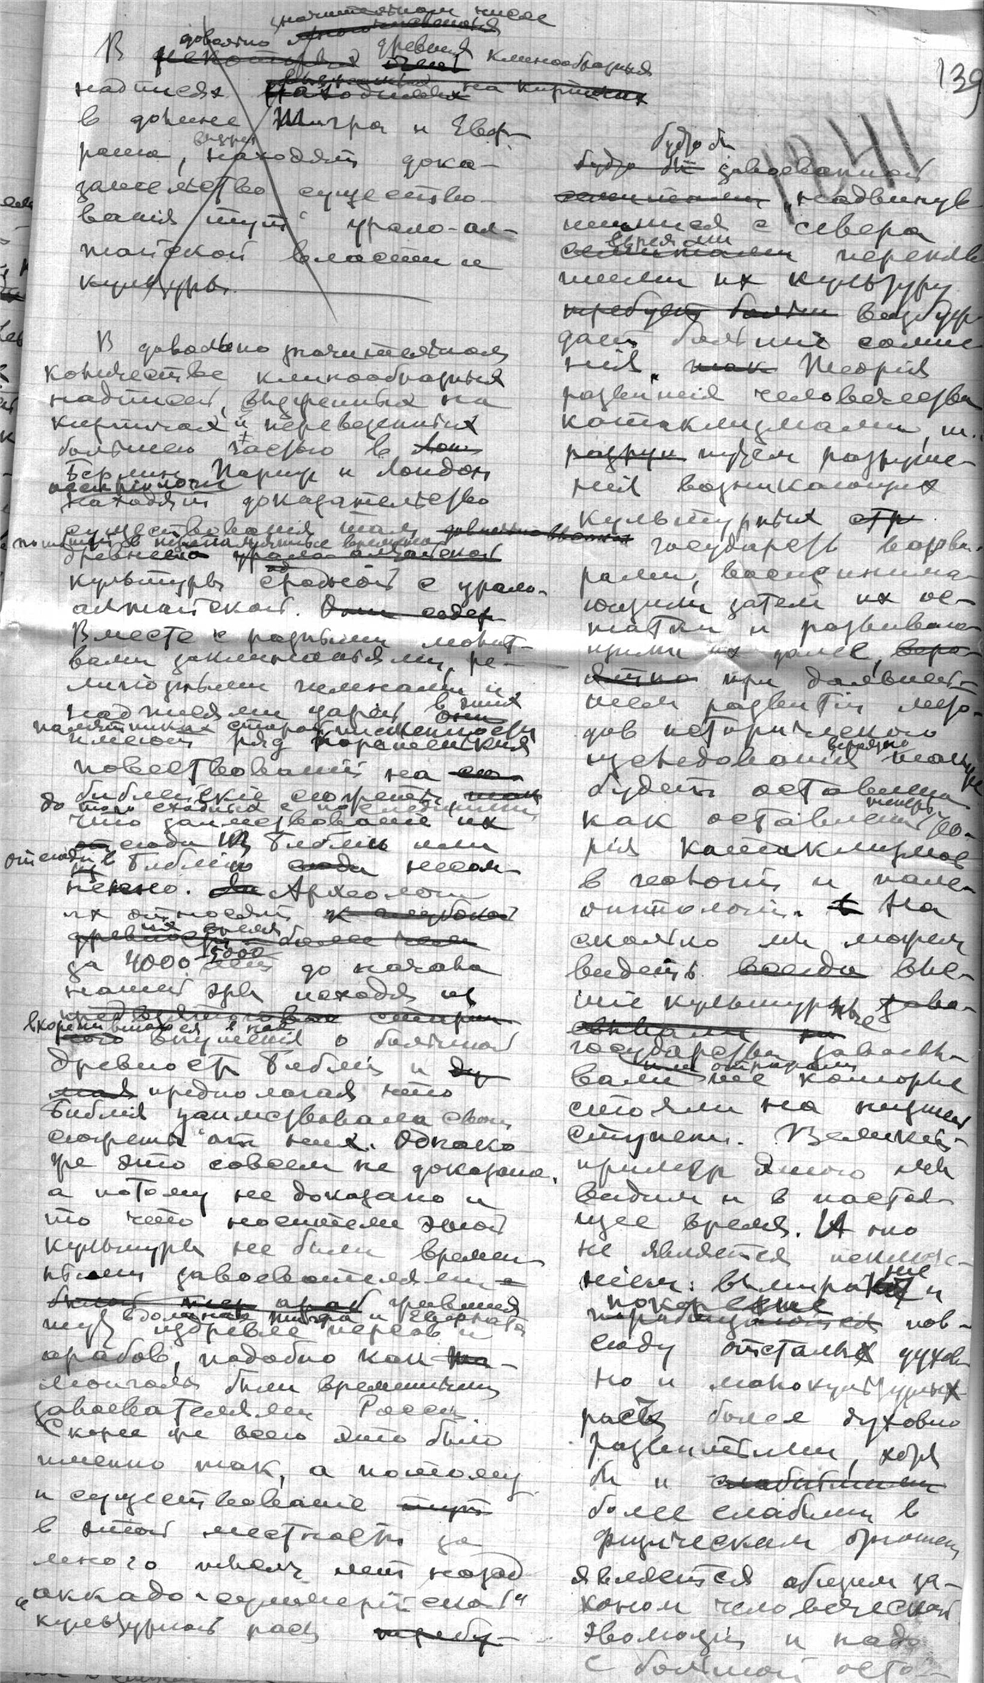 139
1041
значительном числе
В довольно древних клинообразных
надписях на кирпичах
в долине Тигра и Евф-
рата, находят дока-
зательство существо-
вания тут урало-ал-
тайской власти и
культуры.
В довольно значительном
количестве клинообразных
надписей, выдуленных на
кирпичах и перевезенных
большею частью в
Берлин, Париж и Лондон
находят доказательство
существования там
культуры сродной с урало-
алтайской.
Вместе с разными молит-
вами заклинаниями, ре-
лигиозными гимнами и
надписями царей в этих
памятниках старой письменности
имеют ряд
повествований на
библейские сюжеты
до того сходных с последними,
что заимствование их
отсюда в Библию или
из Библии сюда несом-
ненно. Археологи
их относят
за 4000-5000 до начала
нашей эры исходя из
вкоренившагося в нас
внушения о большой
древности Библии и
предполагая что
Библия заимствовала свои
сюжеты от них. Однако
же это совсем не доказано,
а потому не доказано и
то что носители этой
культуры не были времен-
ными завоевателями
в долинах Тигра и Евфрата
издревле персов и
арабов, подобно как
монголы были временными
завоевателями России.
Скорее же всего это было
именно так, а потому
и существование
в этой местности за
много тысяч лет назад
"аккадо-сумерийской"
культурной расы
будто бы завоеванной
надвинув-
шимися с севера
евреями переняв-
шими их культуру
возбуж-
дает большие сомне-
ния. Теория
развития человечества
катаклизмами, т.
путем разруше-
ния возникающих
культурных
государств варва-
рами, воспринима-
ющими затем их ос-
татки и развиваю-
щими их далее,
при дальней-
шем развитии мето-
дов исторического
исследования вероятно также
будет оставлена
как оставлена теперь тео-
рия катаклизмов
в геологии и пале-
онтологии. На
сколько мы можем
видеть вы-
шие культурные
государства завоевы-
вали те которые
стояли на низшей
ступени. Великий
пример этого мы
видим и в настоя-
щее время. И что
не является исключе-
нием: вымирание и
покорение пов-
сюду отсталых духов-
но и малокультурных
рас более духовно
развитыми, хотя
бы и
более слабыми в
физическом отношении
является общим за-
коном человеческой
эволюции и надо
с большой осто-